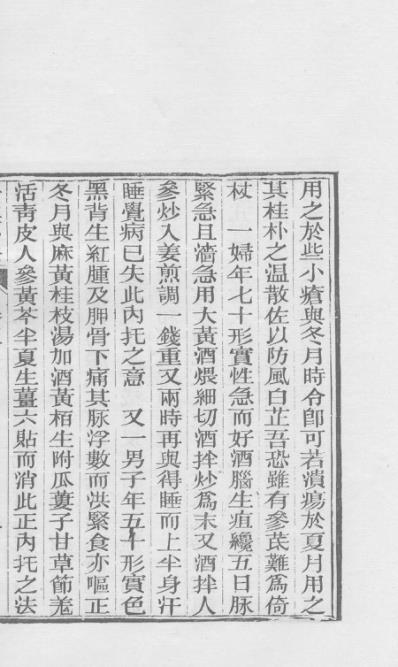 用之於些小瘡與冬月時令卽可若潰瘍於夏月用之
其桂朴之温散佐以防風白芷吾恐雖有參茋難爲倚
杖　一婦年七十形實性急而好酒腦生疽纔五日脉
緊急且濇急用大黃酒煨細切酒拌炒爲末又酒拌人
參炒入姜煎調一錢重又兩時再與得睡而上半身汗
睡覺病已失此內托之意　又一男子年五十形實色
黑背生紅腫及胛骨下痛其脉浮數而洪緊食亦嘔正
冬月與麻黃桂枝湯加酒黃栢生附瓜蔞子甘草節羗
活靑皮人參黃芩半夏生薑六貼而消此正內托之法